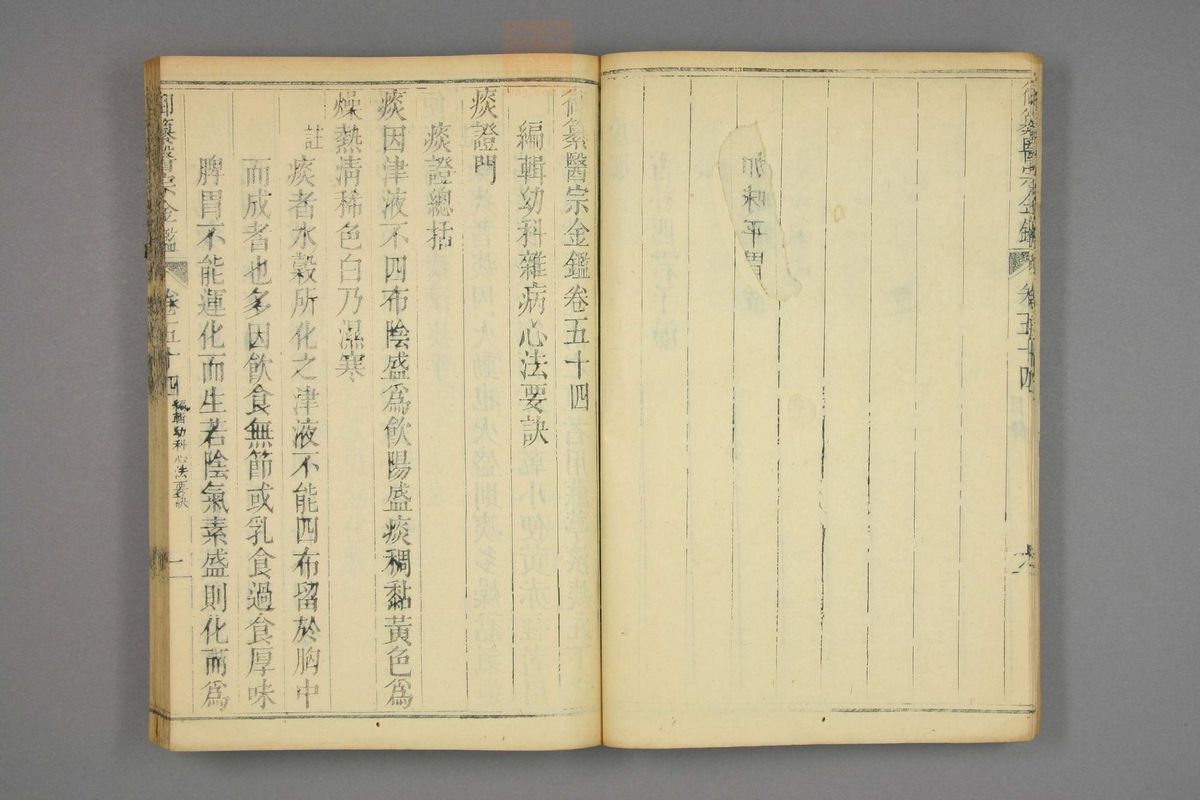 御纂醫宗金鑑 卷五十四
加味平胃散
御纂醫宗金鑑卷五十四
編輯幼科雜病心法要訣
痰證門
痰證總括
痰因津液不四布陰盛為飲陽盛痰稠黏黃色為
燥熱清稀色白乃濕寒
註
痰者水穀所化之津液不能四布留於胸中
而成者也多因飲食無節或乳食過食厚味
脾胃不能運化而生若陰氣素盛則化而為
御纂醫宗金鑑 卷五十四 編輯幼科心法要訣 一